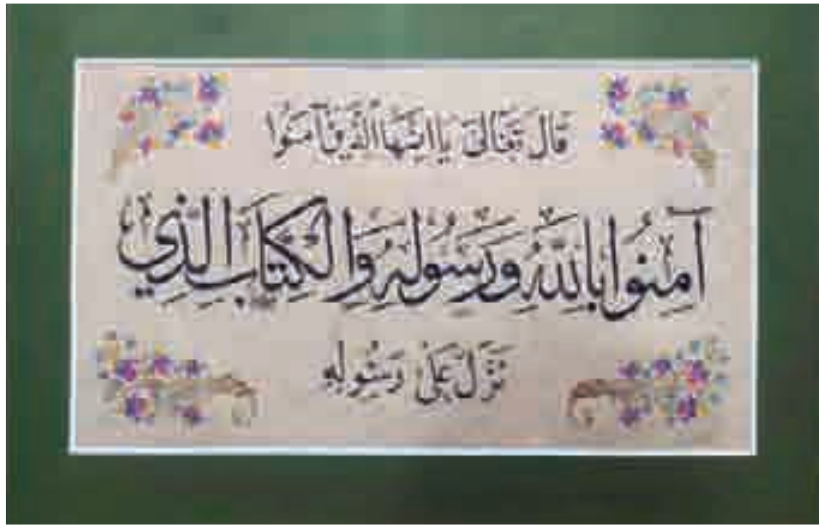 قال تعالى يا ايها الذين آمنوا
آمِنُوا بِاللَّهِ وَرَسُولِهِ وَالْكِتَابِ الَّذِي
نَزَّلَ عَلَىٰ رَسُولِهِ